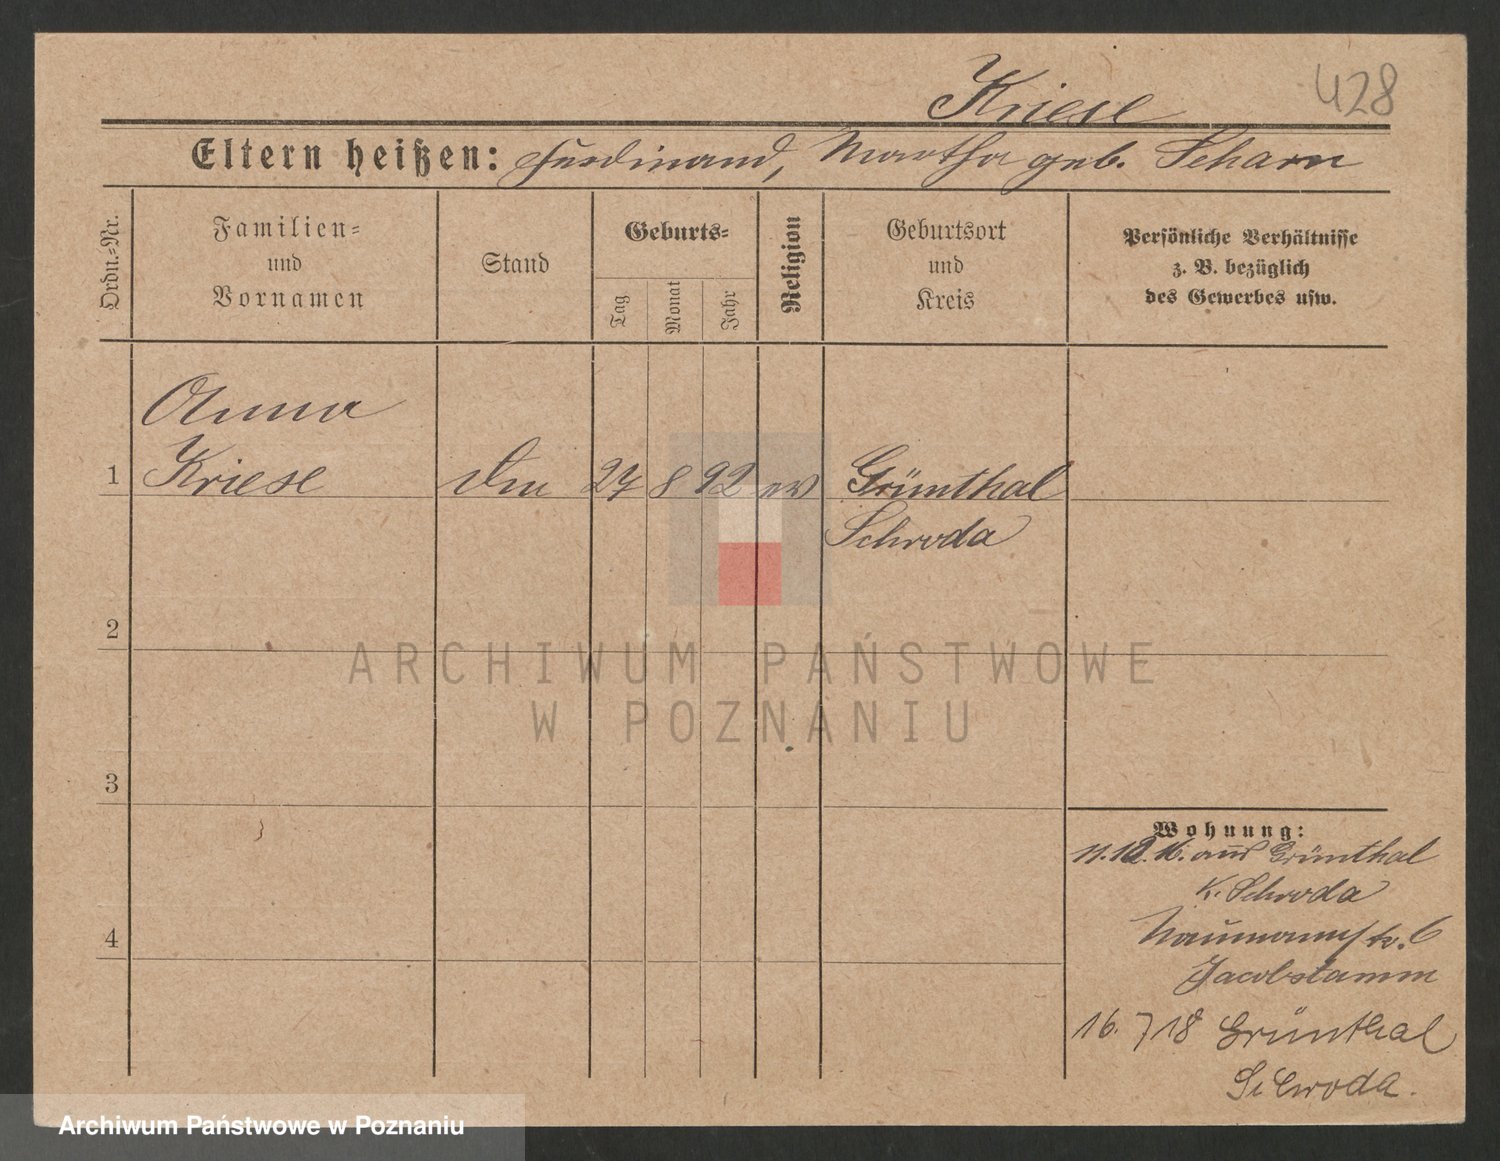 428
Kriese
Eltern heißen: Ferdinand, Martha geb. Scharn
Ordn.-Nr.
Familien-
und
Vornamen
Stand
Geburts-
Tag
Monat
Jahr
Religion
Geburtsort
und
Kreis
Persönliche Verhältnisse
z. B. bezüglich
des Gewerbes usw.
Anna
1 Kriese 27 8 92 ev Grünthal
Schroda
2
3
4
Wohnung:
11.12.16. aus Grünthal
K. Schroda
Naumannstr. 6
16. 7 18 Grünthal
Schroda.
ARCHIWUM PAŃSTWOWE
W POZNANIU
Archiwum Państwowe w Poznaniu